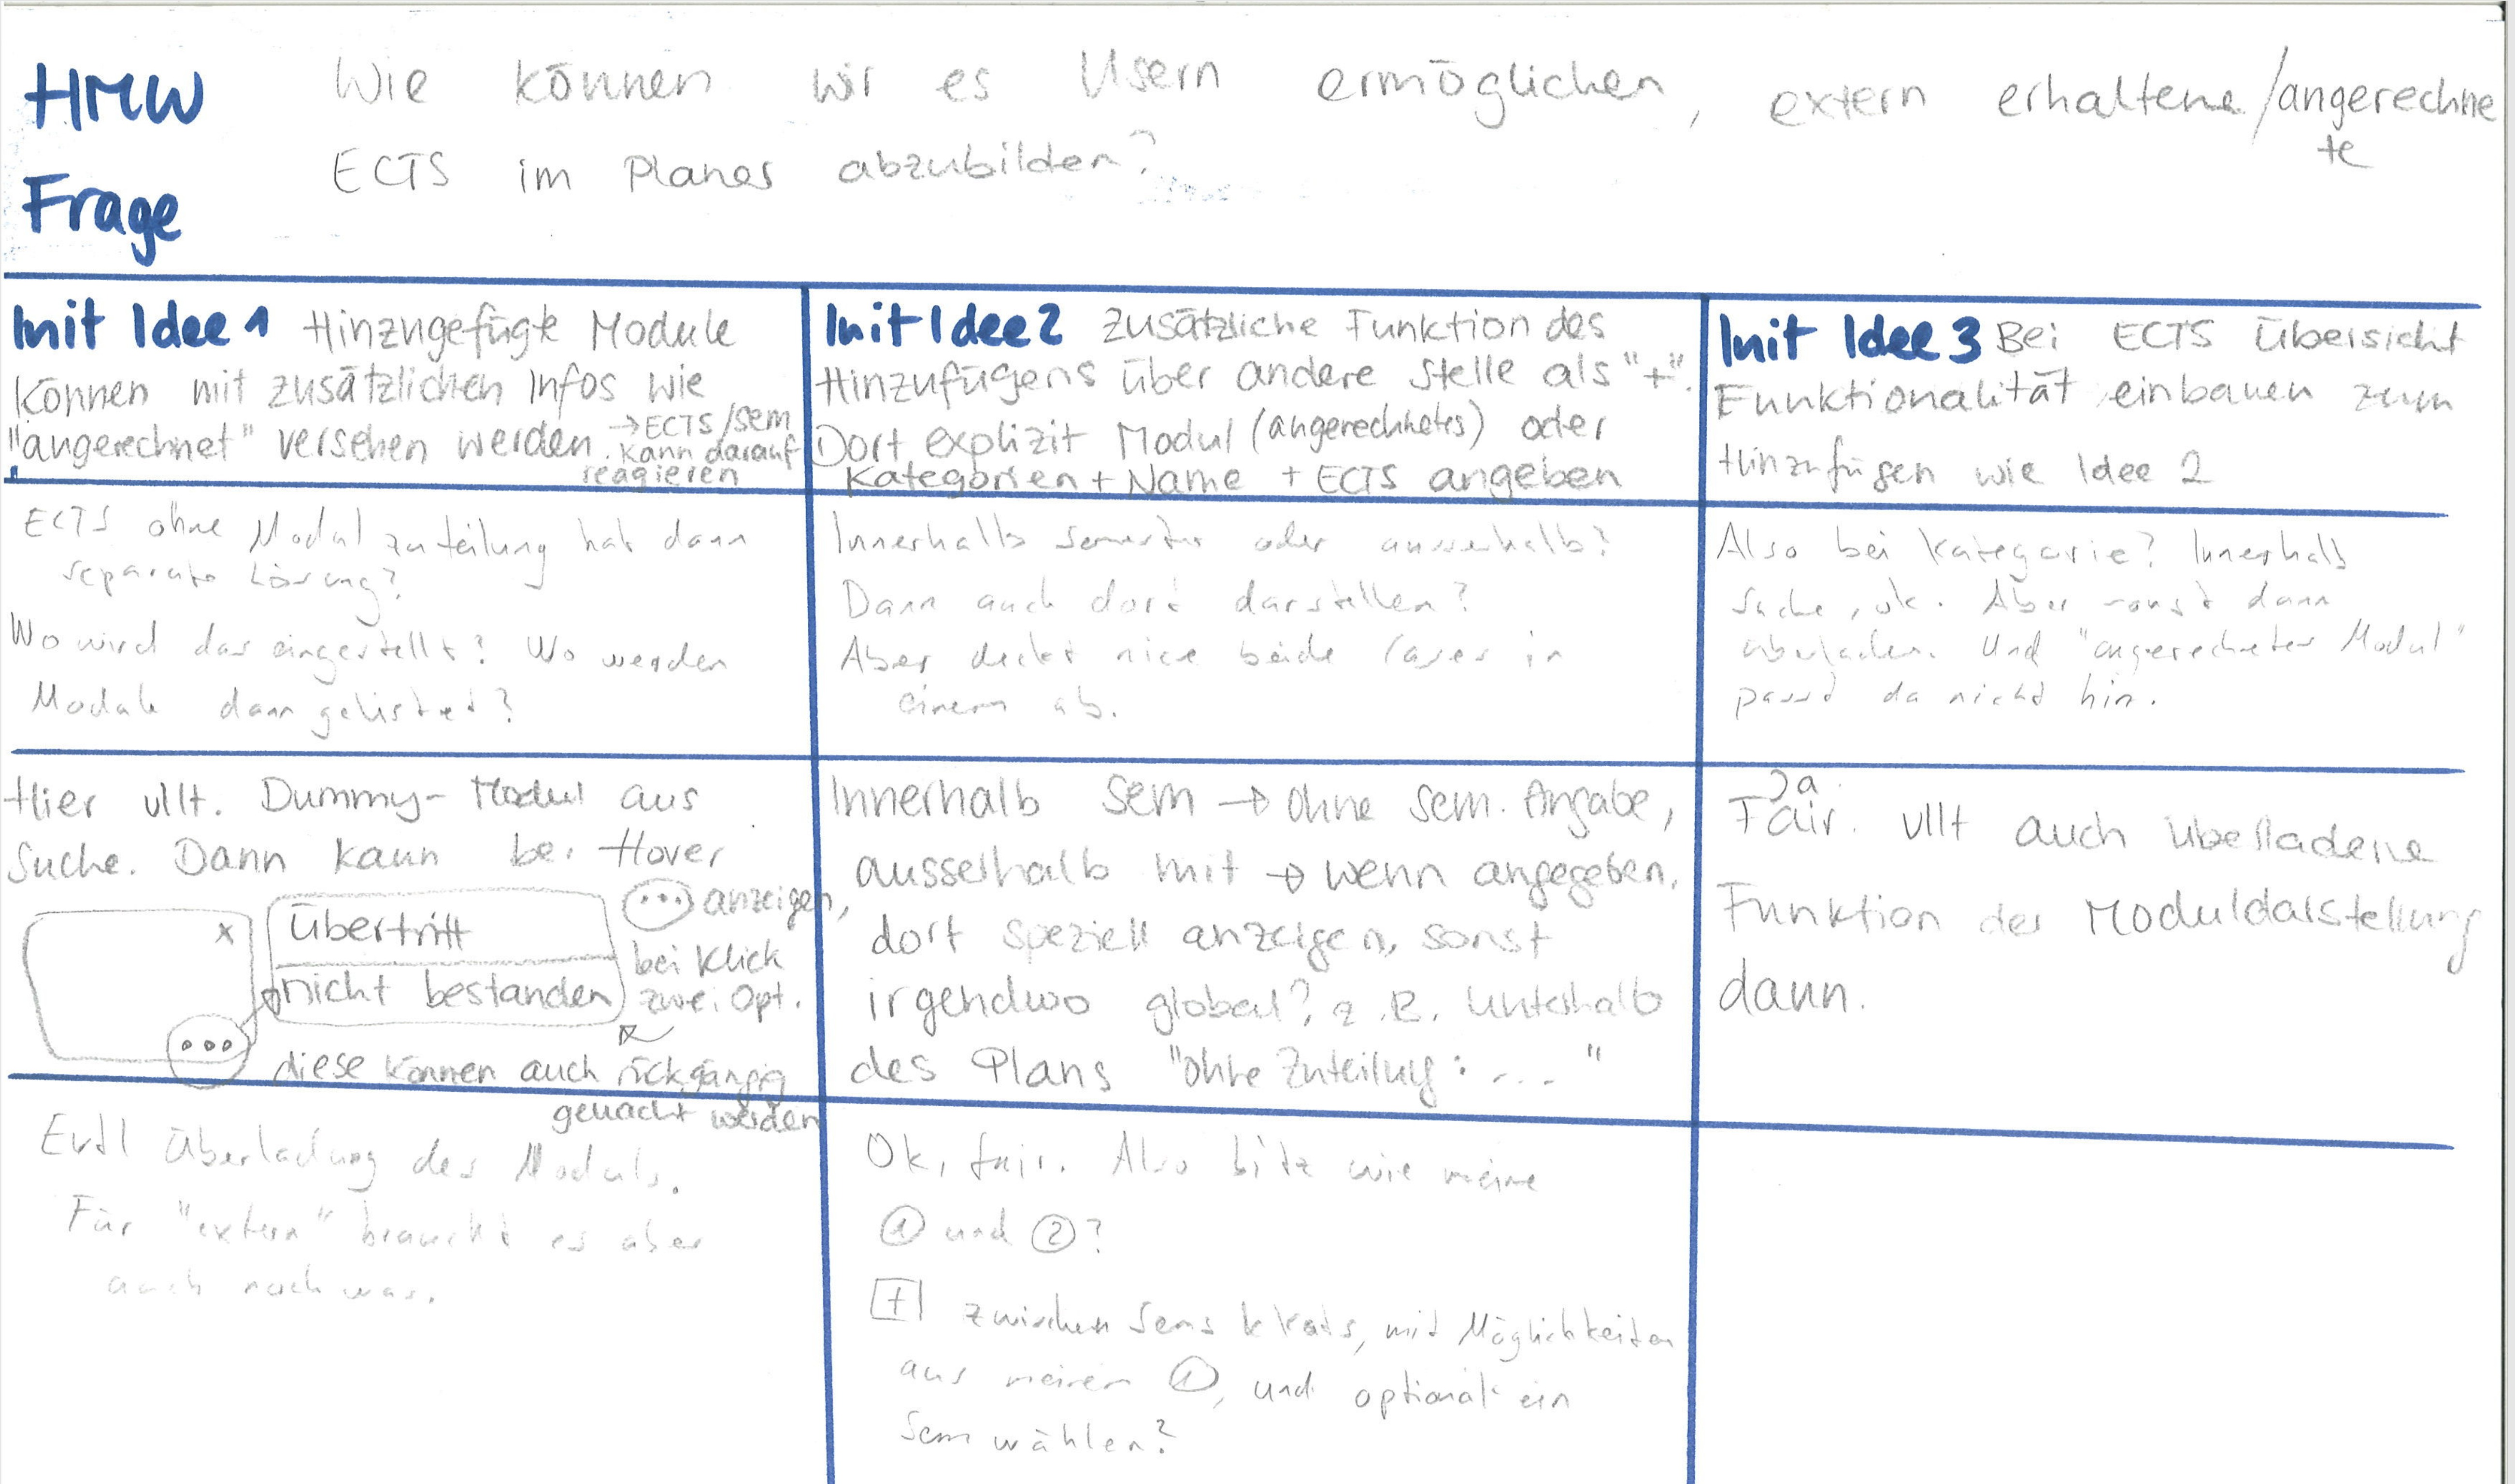 HMW Frage
Wie können wir es Usern ermöglichen, extern erhaltene/angerechnete
ECTS im Planer abzubilden?
Init Idee 1 Hinzugefügte Module
können mit zusätzlichen Infos wie
"angerechnet" versehen werden. → ECTS/Sem
kann darauf
reagieren
Init Idee 2 Zusätzliche Funktion des
Hinzufügens über andere Stelle als "+".
Dort explizit Modul (angerechnetes) oder
Kategorien + Name + ECTS angeben
Init Idee 3 Bei ECTS Übersicht
Funktionalität einbauen zum
Hinzufügen wie Idee 2
ECTS ohne Modulzuteilung hat dann
separate Lösung?
Wo wird das eingestellt? Wo werden
Module dann gelistet?
Innerhalb Semester oder ausserhalb?
Dann auch dort darstellen?
Aber deckt nice beide Cases in
einem ab.
Also bei Kategorie? Innerhalb
Suche, ok. Aber sonst dann
überladen. Und "angerechnetes Modul"
passt da nicht hin.
Hier vllt. Dummy-Modul aus
Suche. Dann kann bei Hover
... anzeigen,
bei Klick
zwei Opt.
x
Übertritt
nicht bestanden
...
diese können auch rückgängig
gemacht werden
Innerhalb Sem → ohne Sem. Angabe,
ausserhalb mit → wenn angegeben,
dort speziell anzeigen, sonst
irgendwo global? z.B. unterhalb
des Plans "ohne Zuteilung: ... "
Ja
Fair. vllt auch überladene
Funktion der Moduldarstellung
dann.
Evtl Überladung des Moduls.
Für "extern" braucht es aber
auch noch was.
Ok, fair. Also bitz wie meine
① und ②?
+ zwischen Sems & Kats, mit Möglichkeiten
aus meiner ①, und optional ein
Sem wählen?